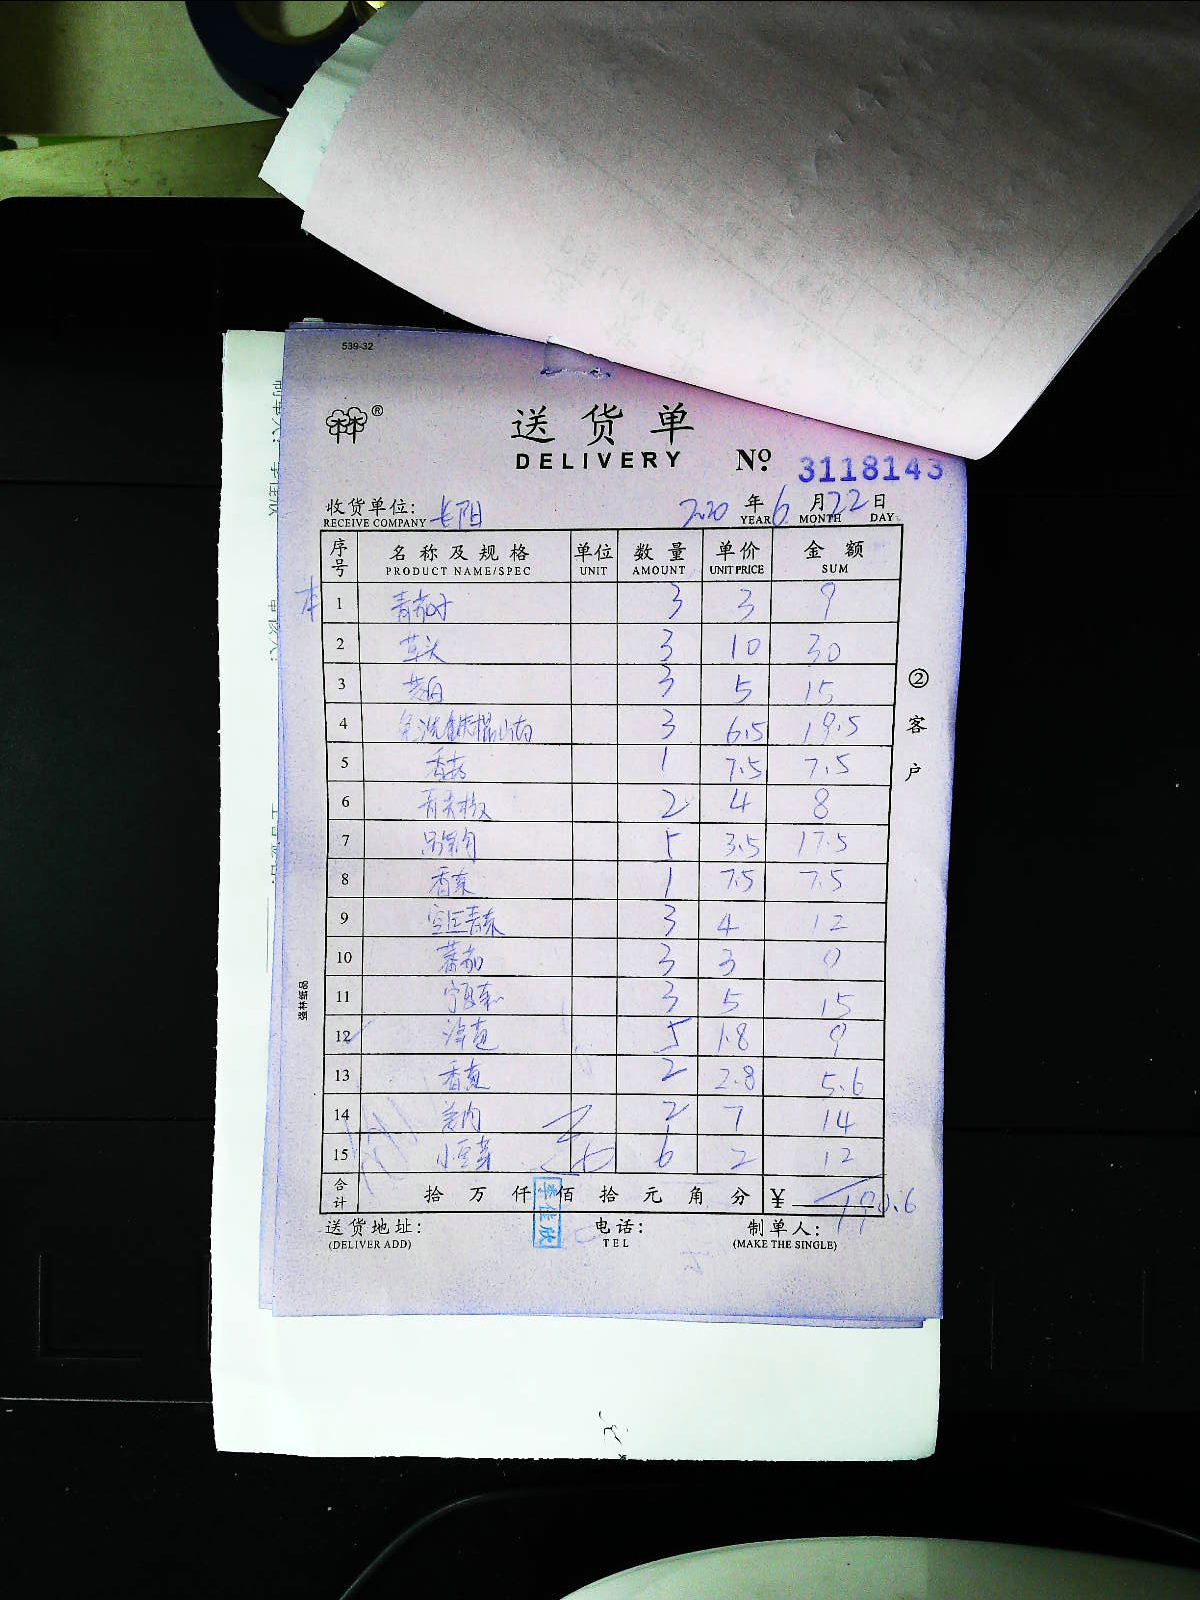 539-32
®
送货单
DELIVERY
Nº 3118143
收货单位: 长阳 2020 年 6 月 22 日
RECEIVE COMPANY YEAR MONTH DAY
序号 名称及规格 单位 数量 单价 金额
PRODUCT NAME/SPEC UNIT AMOUNT UNIT PRICE SUM
1 3 3 9
2 草头 3 10 30
3 茭白 3 5 15
4 3 6.5 19.5
5 香菇 1 7.5 7.5
6 青尖椒 2 4 8
7 5 3.5 17.5
8 香菜 1 7.5 7.5
9 3 4 12
10 蕃茄 3 3 9
11 3 5 15
12 5 1.8 9
13 2 2.8 5.6
14 2 7 14
15 小豆芽 6 2 12
合计 拾 万 仟 佰 拾 元 角 分 ¥ 190.6
李佳欣
送货地址: 电话: 制单人:
(DELIVER ADD) TEL (MAKE THE SINGLE)
②客户
强林纸品